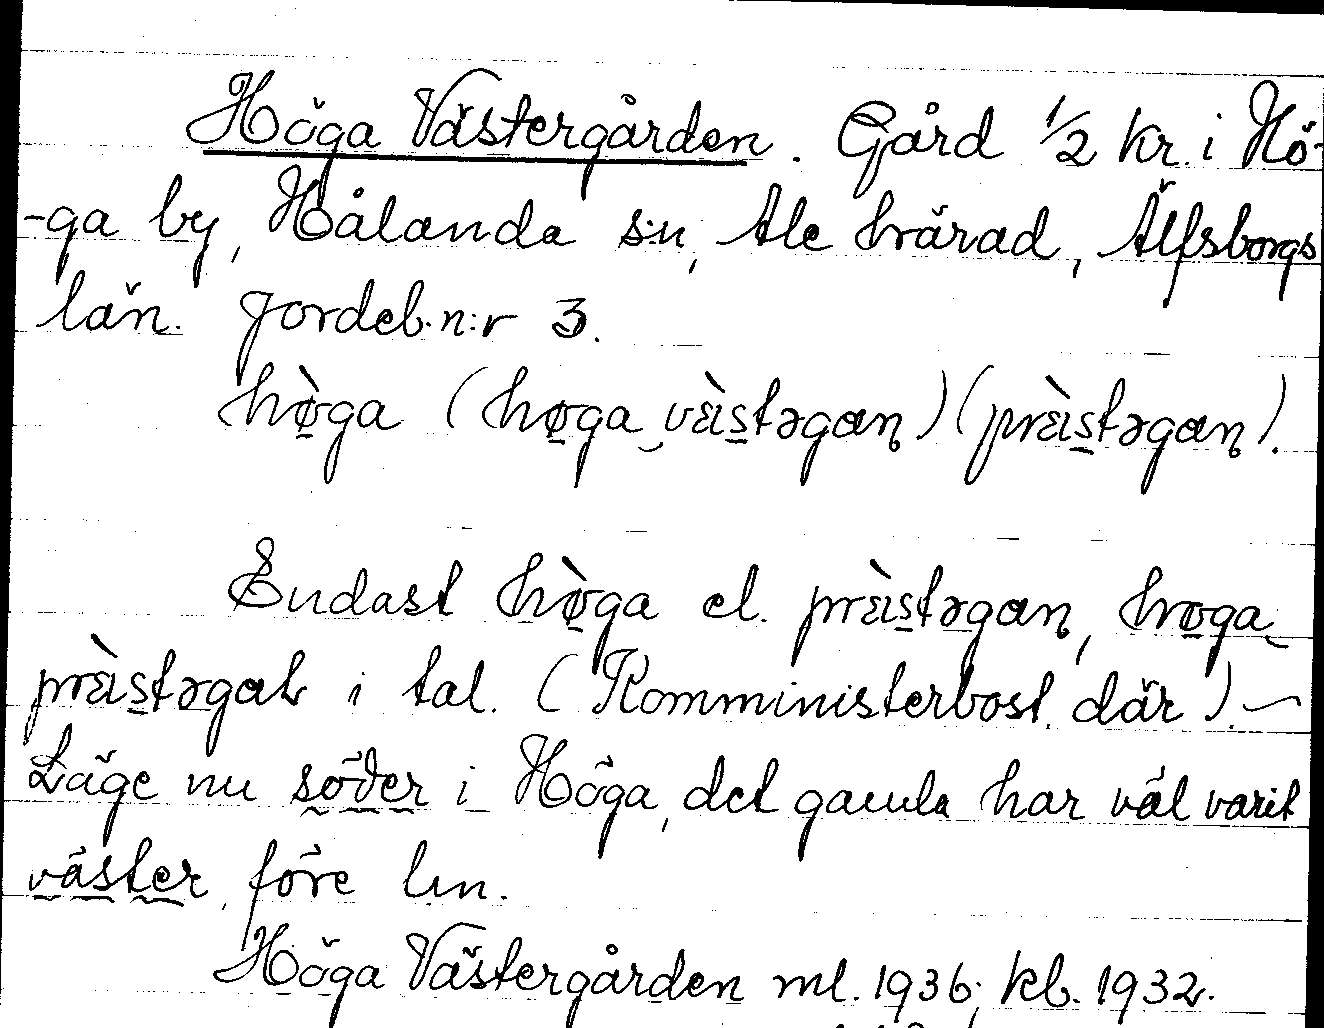 Höga Västergården. Gård 1/2 kr. i Hö-
-ga by, Hålanda s:n, Ale härad, Älfsborgs
län. Jordeb. n:r 3.
hø̀ga (høga vɛ̀istəgaɳ) (prɛ̀istəgaɳ).
Endast hø̀ga el. prɛ̀istəgaɳ, høga
prɛ̀istəgaɳ i tal. (Komministerbost. där). —
Läge nu söder i Höga, det gamla har väl varit
väster, före
Höga Västergården ml. 1936; kb. 1932.